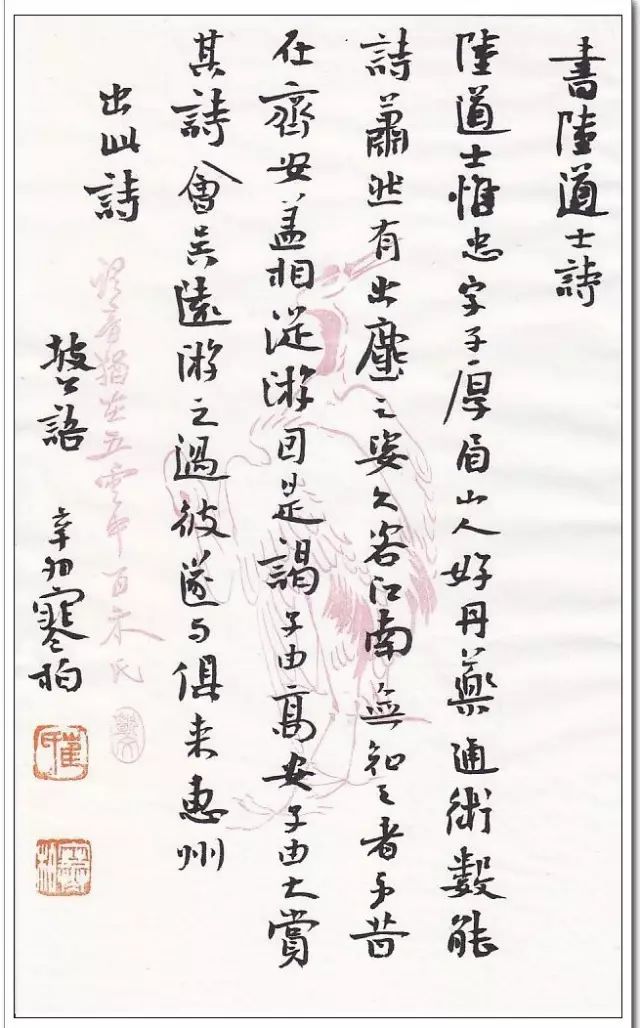 書陸道士詩
陸道士惟忠字子厚眉山人好丹藥通術數能
詩蕭然有出塵之姿久客江南無知之者予昔
在齊安蓋相從游因是謁子由高安子由大賞
其詩會吳遠游之過彼遂與俱來惠州
出此詩
坡公語
辛卯寒柏
猶在五雲中百禾氏
崔